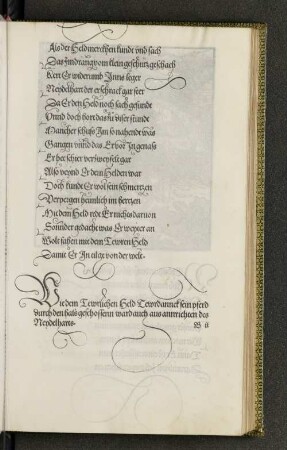 Als der Held merckhen kundt vnd sach
Das sein dranng vom klein geschutz geschach
Kert Er widerumb Inns leger
Neydelhart der erschrack gar seer
Da Er den Held noch sach gesundt
Vnnd doch hort das zu diser stundt
Mancher schuss Im so nahend was
Ganngen vnnd das Er vor In genass
Er het schier verzweyfelt gar
Also veynd Er dem Helden war
Doch kundt Er wol sein schmertzen
Verpergen heimlich im hertzen
Mit dem Held redt Er nichts daruon
Sonnder gedacht was Er weyter an
Wolt fahen mit dem Tewren Held
Damit Er In tilgt von der welt
Wie dem Tewrlichen Held Tewrdannck sein pferd
durch den hals geschossenn ward auch aus anntrichten des
Neydelharts